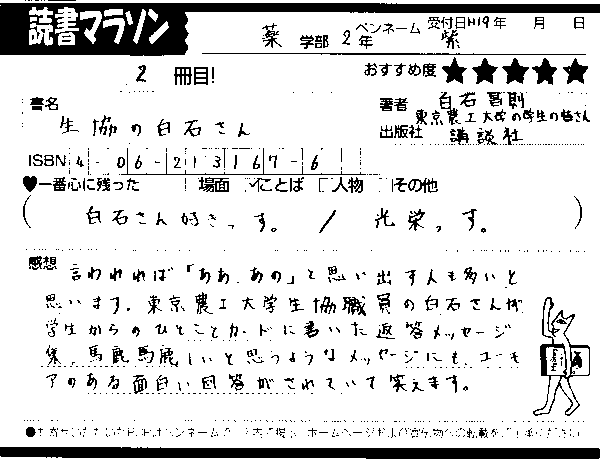 読書マラソン
薬 学部 2年 ペンネーム 紫 受付日H19年 月 日
2 冊目!
おすすめ度 ★★★★★
書名 生協の白石さん
著者 白石昌則
東京農工大学の学生の皆さん
出版社 講談社
ISBN 4-06-213167-6
♥一番心に残った □場面 ☑ことば □人物 □その他
(白石さん好きっす。/光栄っす。)
感想 言われれば「ああ、あの」と思い出す人も多いと
思います。東京農工大学生協職員の白石さんが
学生からのひとことカードに書いた返答メッセージ
集。馬鹿馬鹿しいと思うようなメッセージにも、ユーモ
アのある面白い回答がされていて笑えます。
ペンネーム ホームページおよび